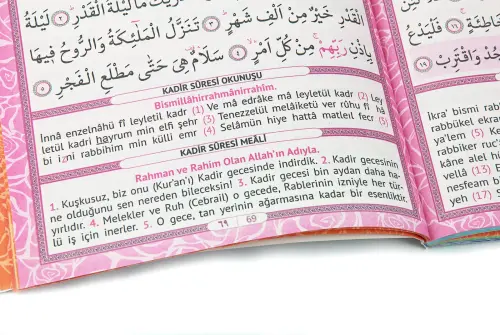 الْقَدْرِ خَيْرٌ مِنْ اَلْفِ شَهْرٍ ﴿٣﴾ تَنَزَّلُ الْمَلٰٓئِكَةُ وَالرُّوحُ فِيهَا
بِاِذْنِ رَبِّهِمْ مِنْ كُلِّ اَمْرٍ ﴿٤﴾ سَلَامٌ هِيَ حَتّٰى مَطْلَعِ الْفَجْرِ ﴿٥﴾
KADİR SÛRESİ OKUNUŞU
Bismillâhirrahmânirrahîm.
İnnâ enzelnâhü fî leyletil kadr (1) Ve mâ edrâke mâ leyletül kadr (2) Ley
letül kadri hayrum min elfi şehr (3) Tenezzelül melâiketü ver rûhu fî hâ
bi izni rabbihim min külli emr (4) Selâmün hiye hattâ matleıl fecr (5)
KADİR SÛRESİ MEÂLİ
Rahman ve Rahim Olan Allah'ın Adıyla.
1. Kuşkusuz, biz onu (Kur'an'ı) Kadir gecesinde indirdik. 2. Kadir gecesinin
ne olduğunu sen nereden bileceksin! 3. Kadir gecesi bin aydan daha ha-
yırlıdır. 4. Melekler ve Ruh (Cebrail) o gecede, Rablerinin izniyle her tür-
lü iş için inerler. 5. O gece, tan yerinin ağarmasına kadar bir esenliktir.
٦٩ 69
İkra' bismi rabbi
rabbükel ekra
ya'lem (5)
rabbike
kâne alel h
vellâ (13)
nesfeam b
yeh (17)